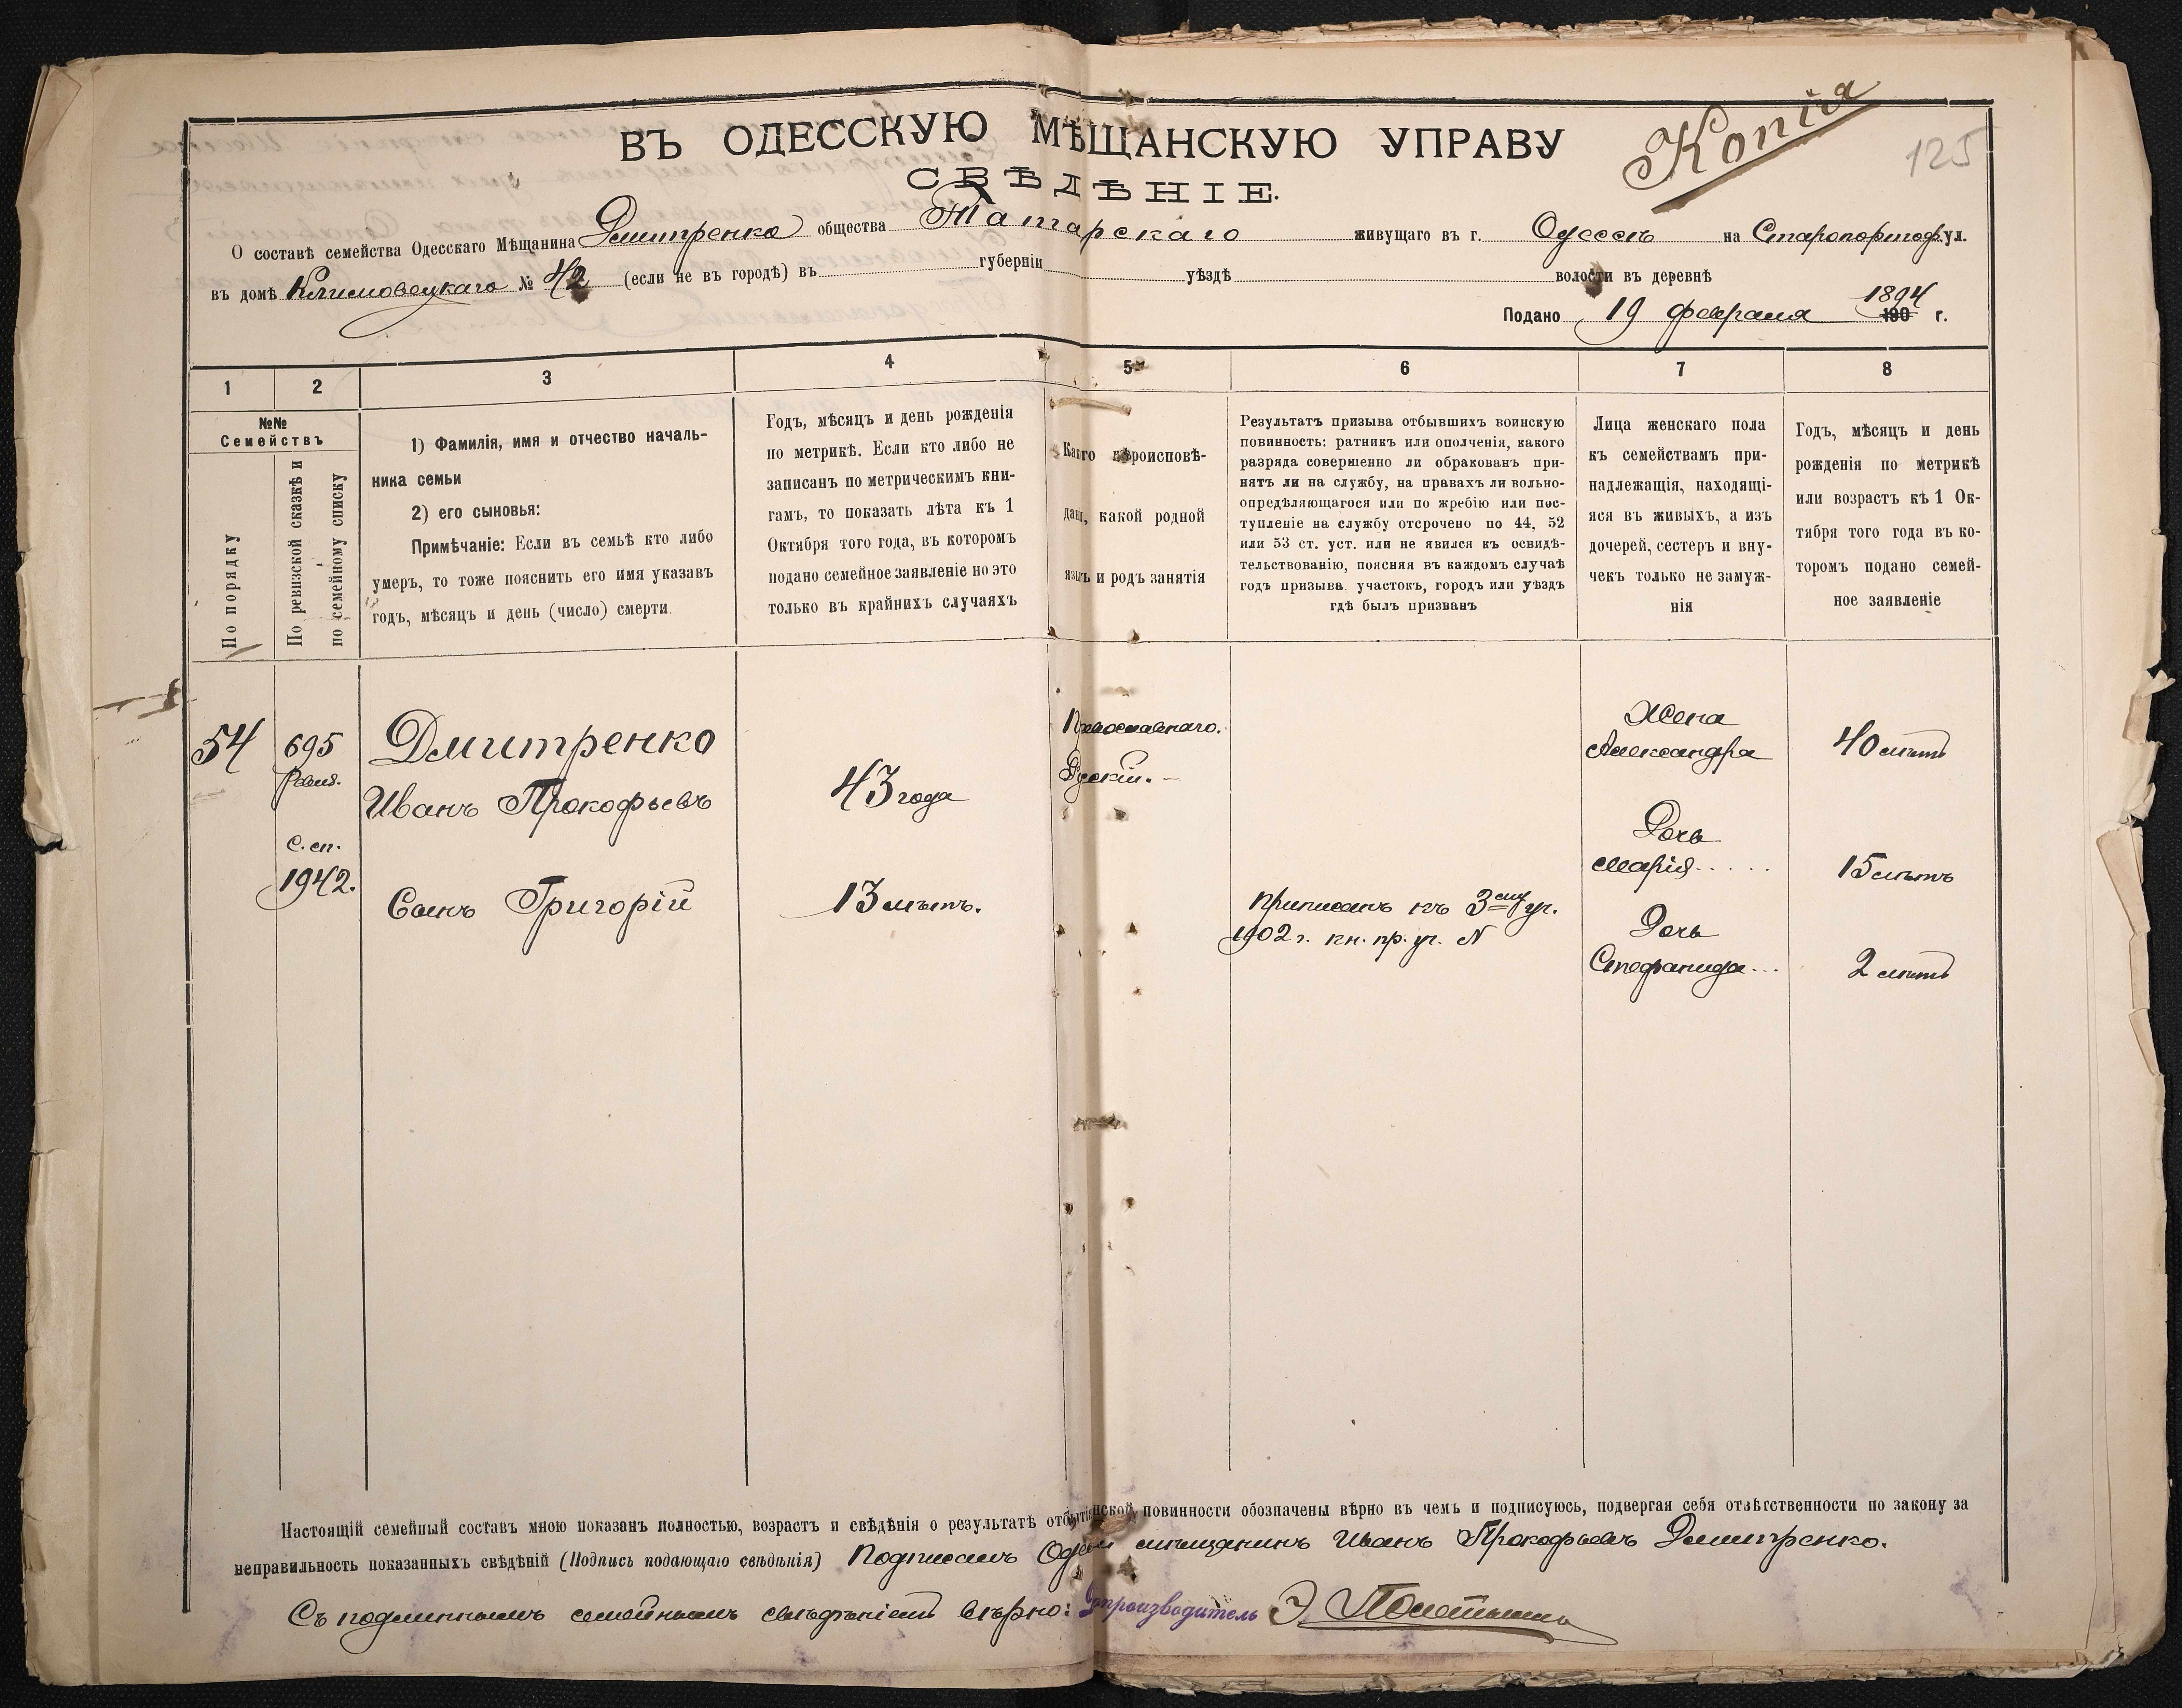 Копія
125
ВЪ ОДЕССКУЮ МѢЩАНСКУЮ УПРАВУ
СВѢДѢНІЕ.
О составѣ семейства Одесскаго Мѣщанина Дмитренко общества Татарскаго живущаго въ г. Одессѣ на Старопортоф. ул.
въ домѣ Климовецкаго № 42 (если не въ городѣ) въ губерніи уѣздѣ волости въ деревнѣ
Подано 19 февраля 1894 190 г.
1
2
3
4
5
6
7
8
№№
Семействъ
По порядку
По ревизской сказкѣ и
по семейному списку
1) Фамилія, имя и отчество началь-
ника семьи
2) его сыновья:
Примѣчаніе: Если въ семьѣ кто либо
умеръ, то тоже пояснить его имя указавъ
годъ, мѣсяцъ и день (число) смерти.
Годъ, мѣсяцъ и день рожденія
по метрикѣ. Если кто либо не
записанъ по метрическимъ кни-
гамъ, то показать лѣта къ 1
Октября того года, въ которомъ
подано семейное заявленіе но это
только въ крайнихъ случаяхъ
Какого вѣроисповѣ-
данія, какой родной
языкъ и родъ занятія
Результатъ призыва отбывшихъ воинскую
повинность: ратникъ или ополченія, какого
разряда совершенно ли обракованъ при-
нятъ ли на службу, на правахъ ли вольно-
опредѣляющагося или по жребію или пос-
тупленіе на службу отсрочено по 44, 52
или 53 ст. уст. или не явился къ освидѣ-
тельствованію, поясняя въ каждомъ случаѣ
годъ призыва. участокъ, городъ или уѣздъ
гдѣ былъ призванъ
Лица женскаго пола
къ семействамъ при-
надлежащія, находящі-
яся въ живыхъ, а изъ
дочерей, сестеръ и вну-
чекъ только не замуж-
нія
Годъ, мѣсяцъ и день
рожденія по метрикѣ
или возрастъ къ 1 Ок-
тября того года въ ко-
торомъ подано семей-
ное заявленіе
54
695
ревиз.
С. сп.
1942.
Дмитренко
Иванъ Прокофьевъ
Сынъ Григорій
43 года
13 лѣтъ.
Православнаго.
Рускій. —
Приписанъ къ 3 му уч.
1902 г. кн. пр. уч. N
Жена
Александра
Дочь
Марія .....
Дочь
Стефанида ...
40 лѣтъ
15 лѣтъ
2 лѣтъ
Настоящій семейный составъ мною показанъ полностью, возрастъ и свѣдѣнія о результатѣ повинности обозначены вѣрно въ чемъ и подписуюсь, подвергая себя отвѣтственности по закону за
неправильность показанныхъ свѣдѣній (Подпись подающаго свѣдѣнія) Подписалъ мѣщанинъ Иванъ Прокофьевъ Дмитренко.
Съ подлиннымъ семейнымъ свѣдѣніемъ вѣрно: